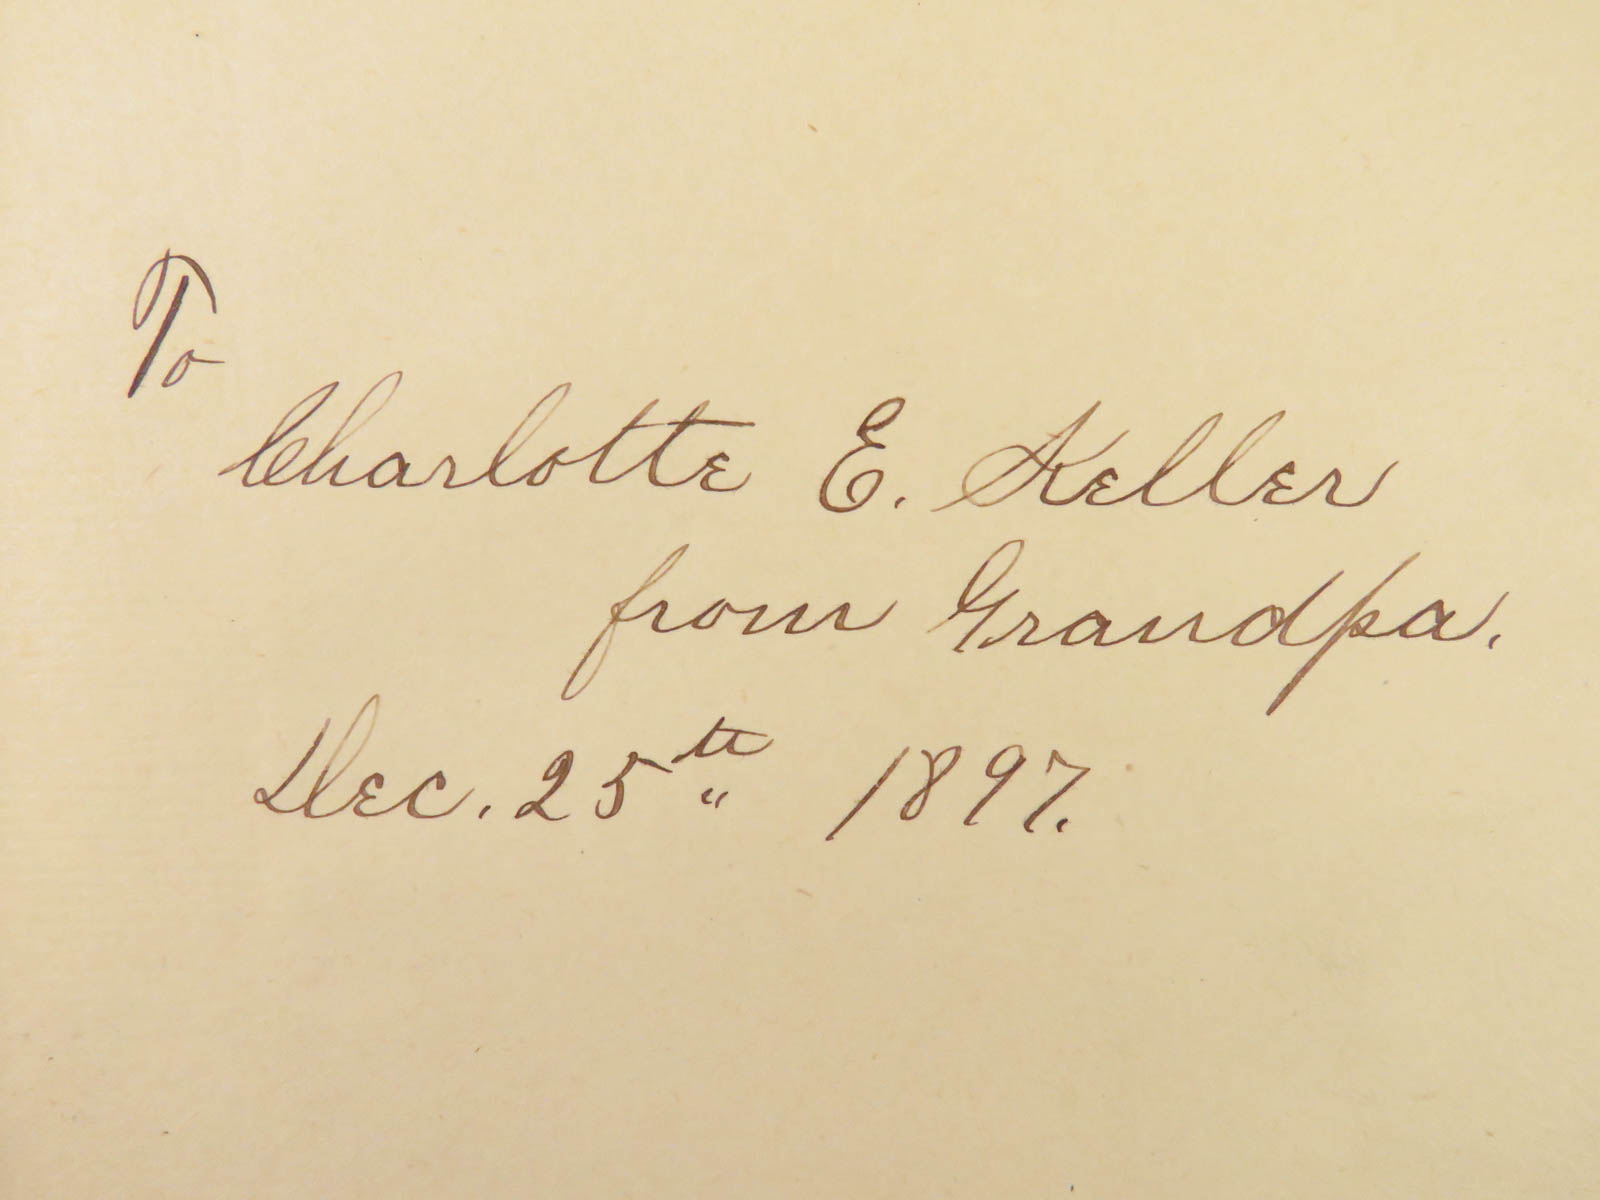 To
Charlotte E. Keller
from Grandpa.
Dec. 25th 1897.